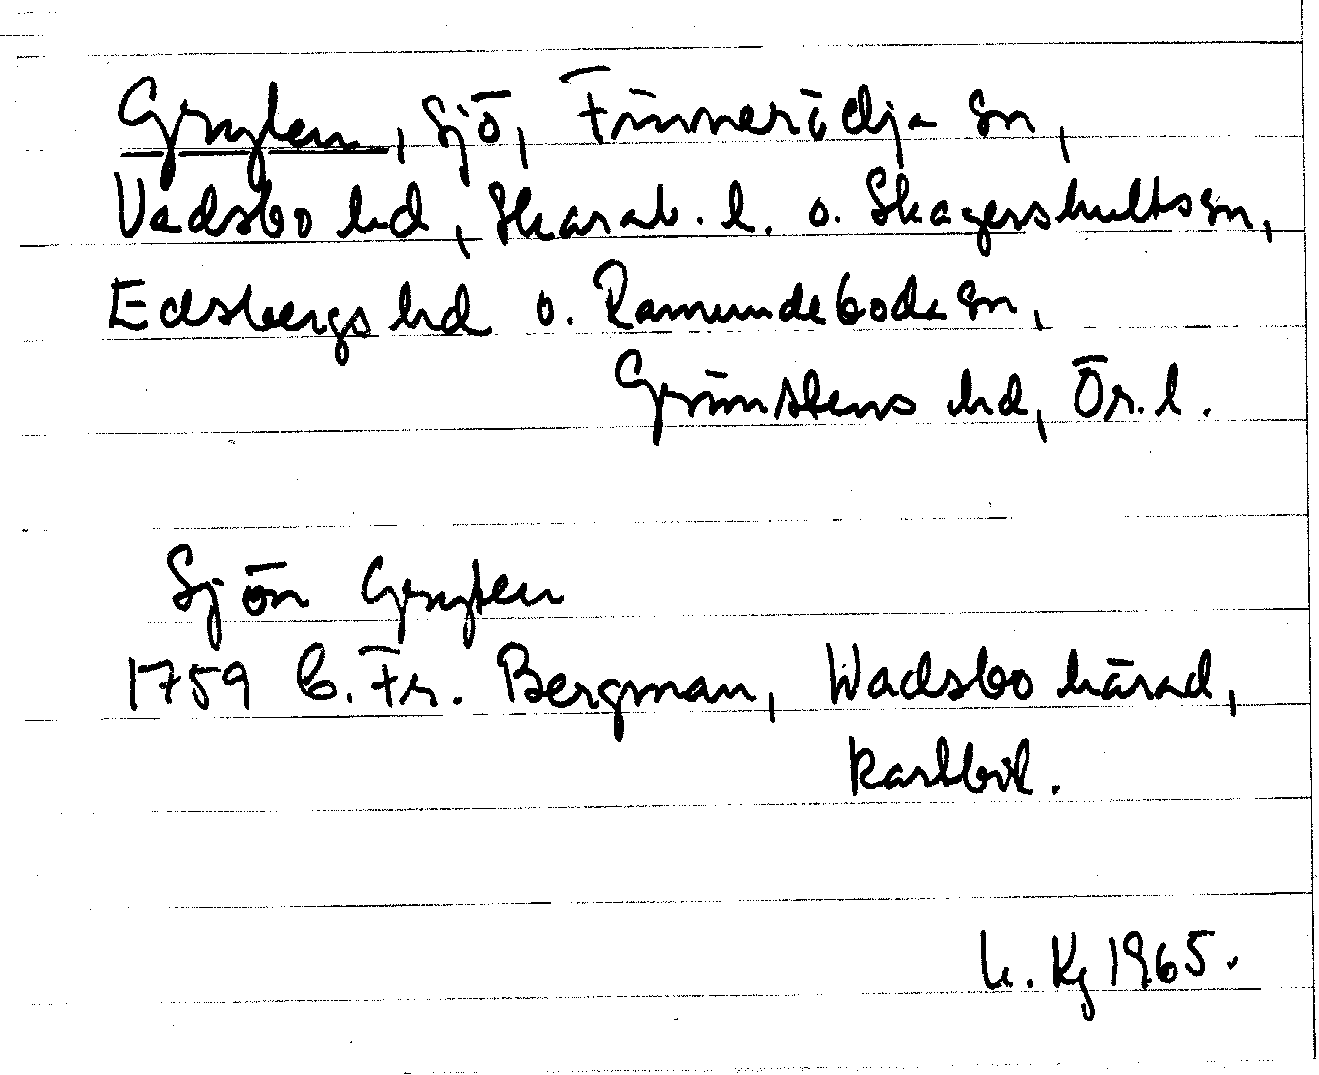 Gryten, sjö, Finnerödja sn,
Vadsbo hd, Skarab. l. o. Skagershults sn,
Edsbergs hd o. Ramundeboda sn,
Grimstens hd, Ör. l.
Sjön Gryten
1759 C. Fr. Bergman, Wadsbo härad,
kartbil.
Kj 1965.